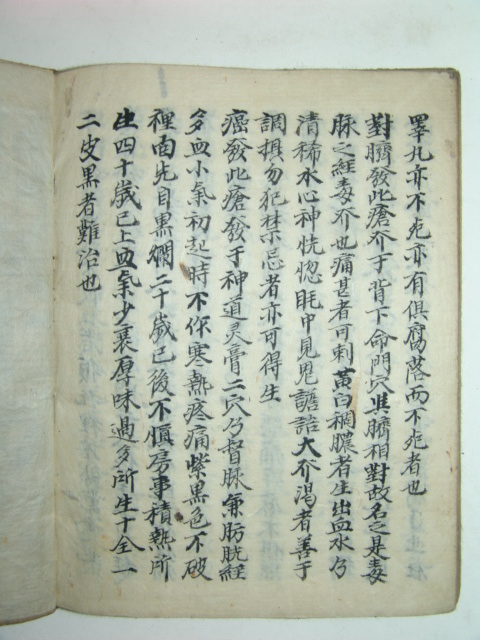 睪丸亦不死亦有俱腐落而不死者也
對臍發此瘡介于背下命門穴與臍相對故名之是毒
脉之經毒介也痛甚者可刺黃白稠膿者生出血水乃
清稀水心神恍惚眊中見鬼譫語大介渴者善于
調損勿犯禁忌者亦可得生
癌發此瘡發于神道灵䯨二穴乃督脉兼肪胱經
多血小氣初起時不作寒熱疼痛紫黑色不破
裡面先自黑爛二十歲已後不慎房事積熱所
生四十歲已上血氣少衰厚味過多所生十全一
二皮黑者難治也